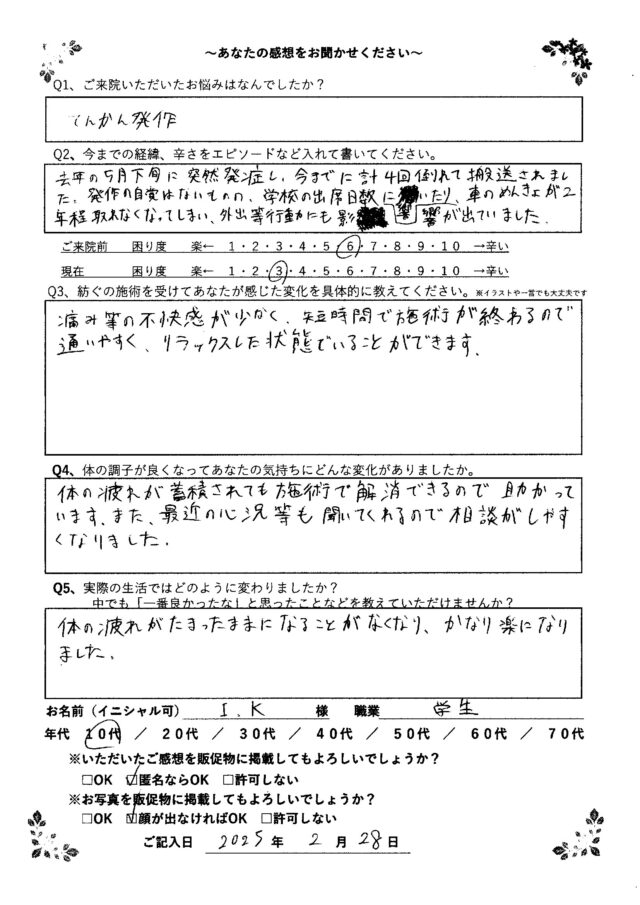 ～あなたの感想をお聞かせください～
Q1、ご来院いただいたお悩みはなんでしたか？
てんかん発作
Q2、今までの経緯、辛さをエピソードなど入れて書いてください。
去年の5月下旬に突然発症し、今までに計4回倒れて搬送されまし
た。発作の自覚はないものの、学校の出席日数に いたり、車のめんきょが2
年程取れなくなってしまい、外出等行動にも影 響 響が出ていました。
ご来院前 困り度 楽← 1・2・3・4・5・6・7・8・9・10 →辛い
現在 困り度 楽← 1・2・3・4・5・6・7・8・9・10 →辛い
Q3、紡ぐの施術を受けてあなたが感じた変化を具体的に教えてください。※イラストや一言でも大丈夫です
痛み等の不快感が少なく、短時間で施術が終わるので
通いやすく、リラックスした状態でいることができます。
Q4、体の調子が良くなってあなたの気持ちにどんな変化がありましたか。
体の疲れが蓄積されても施術で解消できるので助かって
います。また、最近の心況等も聞いてくれるので相談がしやす
くなりました。
Q5、実際の生活ではどのように変わりましたか？
中でも「一番良かったな」と思ったことなどを教えていただけませんか？
体の疲れがたまったままになることがなくなり、かなり楽になり
ました。
お名前（イニシャル可） I.K 様 職業 学生
年代 10代 ／ 20代 ／ 30代 ／ 40代 ／ 50代 ／ 60代 ／ 70代
※いただいたご感想を販促物に掲載してもよろしいでしょうか？
□OK ☑匿名ならOK □許可しない
※お写真を販促物に掲載してもよろしいでしょうか？
□OK ☑顔が出なければOK □許可しない
ご記入日 2025 年 2 月 28 日